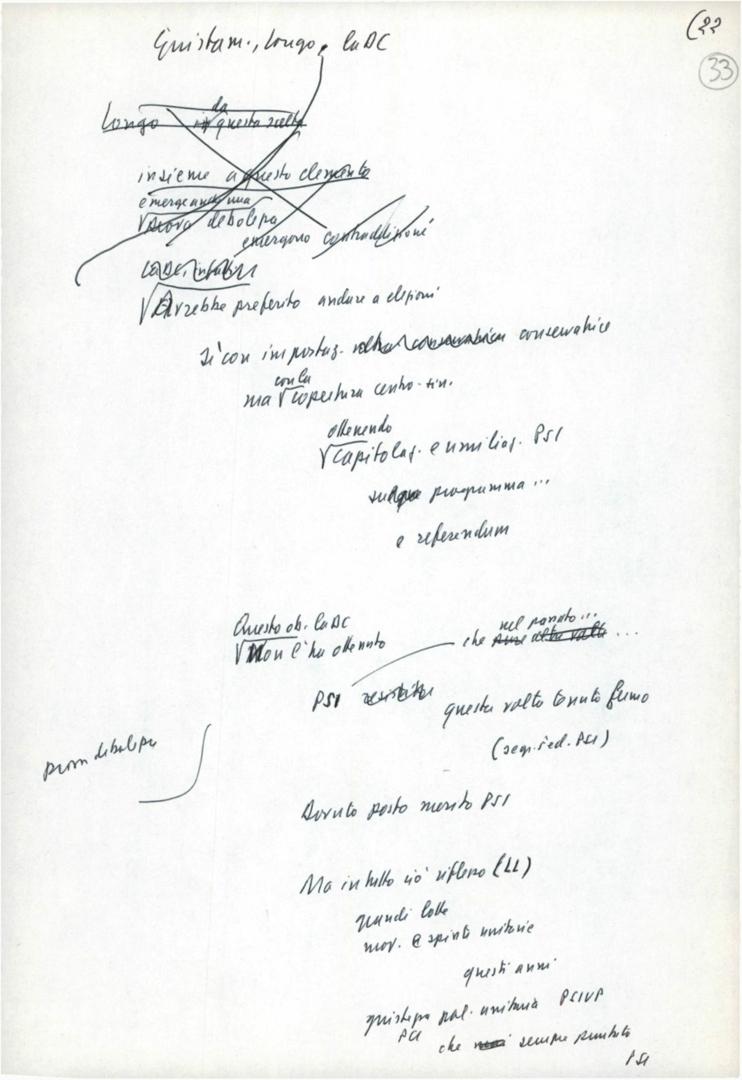 (22
33
Giustam., Longo, la DC
Longo da questa scelta
insieme a questo elemento
emerge anche una
prova debolezza
emergono contraddizioni
La DC, infatti
Avrebbe preferito andare a elezioni
Sì con impostaz. conservatrice
con la
ma copertura centro-sin.
ottenendo
capitolaz. e umiliaz. PSI
su programma ...
e referendum
Questo ob. la DC
Non l'ha ottenuto
nel passato ...
che altre volte ...
PSI
questa volta tenuto fermo
(segr. ed. PSI)
prova debolezza
Dovuto posto merito PSI
Ma in tutto ciò riflesso (LL)
grandi lotte
mov. e spinte unitarie
questi anni
giustezza pol. unitaria PSIUP
PCI
che sempre puntato
PSI